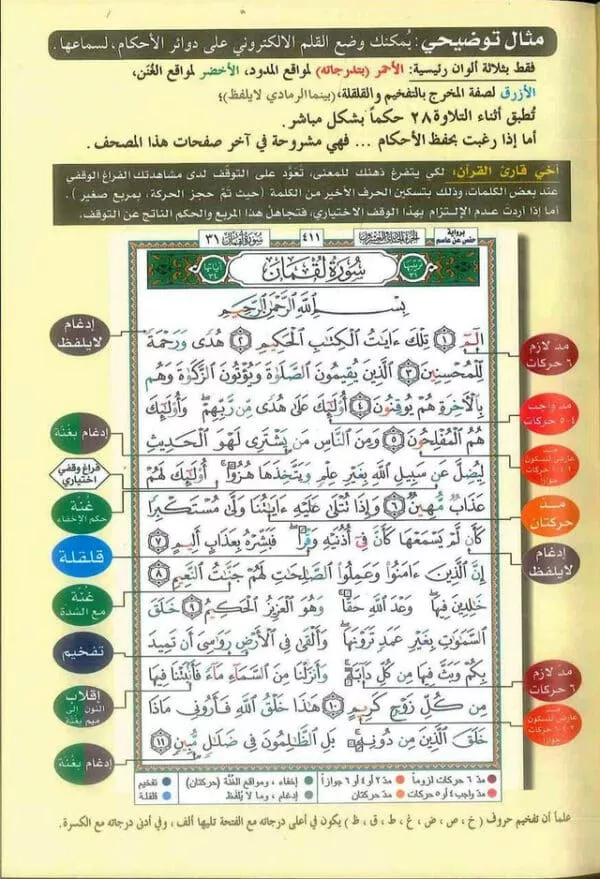 مثال توضيحي: يُمكنك وضع القلم الالكتروني على دوائر الأحكام، لسماعها.
فقط بثلاثة ألوان رئيسية: الأحمر (بتدرجاته) لمواقع المدود، الأخضر لمواقع الغُنَن،
الأزرق لصفة المخرج بالتفخيم والقلقلة، (بينما الرمادي لايلفظ)؛
تُطبق أثناء التلاوة ٢٨ حكماً بشكل مباشر.
أما إذا رغبت بحفظ الأحكام ... فهي مشروحة في آخر صفحات هذا المصحف.
أخي قارئ القرآن: لكي يتفرغ ذهنك للمعنى، تَعوَّد على التوقف لدى مشاهدتك الفراغ الوقفي
عند بعض الكلمات، وذلك بتسكين الحرف الأخير من الكلمة (حيث تَمَّ حجز الحركة، بمربع صغير).
أما إذا أردت عدم الإلتزام بهذا الوقف الاختياري، فتجاهل هذا المربع والحكم الناتج عن التوقف.
برواية
حفص عن عاصم
الجزء الحادي والعشرون
٤١١
سورة لقمان ٣١
ترتيبها ٣١
سُورَةُ لُقْمَان
آياتها ٣٤
بِسْمِ اللَّهِ الرَّحْمَٰنِ الرَّحِيمِ
الٓمٓ ١ تِلْكَ ءَايَٰتُ الْكِتَٰبِ الْحَكِيمِ ٢ هُدًى وَرَحْمَةً
لِّلْمُحْسِنِينَ ٣ الَّذِينَ يُقِيمُونَ الصَّلَوٰةَ وَيُؤْتُونَ الزَّكَوٰةَ وَهُم
بِالْأَخِرَةِ هُمْ يُوقِنُونَ ٤ أُوْلَٰٓئِكَ عَلَىٰ هُدًى مِّن رَّبِّهِمْ وَأُوْلَٰٓئِكَ
هُمُ الْمُفْلِحُونَ ٥ وَمِنَ النَّاسِ مَن يَشْتَرِى لَهْوَ الْحَدِيثِ
لِيُضِلَّ عَن سَبِيلِ اللَّهِ بِغَيْرِ عِلْمٍ وَيَتَّخِذَهَا هُزُوًا أُوْلَٰٓئِكَ لَهُمْ
عَذَابٌ مُّهِينٌ ٦ وَإِذَا تُتْلَىٰ عَلَيْهِ ءَايَٰتُنَا وَلَّىٰ مُسْتَكْبِرًا
كَأَن لَّمْ يَسْمَعْهَا كَأَنَّ فِىٓ أُذُنَيْهِ وَقْرًا فَبَشِّرْهُ بِعَذَابٍ أَلِيمٍ ٧
إِنَّ الَّذِينَ ءَامَنُوا۟ وَعَمِلُوا۟ الصَّٰلِحَٰتِ لَهُمْ جَنَّٰتُ النَّعِيمِ ٨
خَٰلِدِينَ فِيهَا وَعْدَ اللَّهِ حَقًّا وَهُوَ الْعَزِيزُ الْحَكِيمُ ٩ خَلَقَ
السَّمَٰوَٰتِ بِغَيْرِ عَمَدٍ تَرَوْنَهَا وَأَلْقَىٰ فِى الْأَرْضِ رَوَٰسِىَ أَن تَمِيدَ
بِكُمْ وَبَثَّ فِيهَا مِن كُلِّ دَآبَّةٍ وَأَنزَلْنَا مِنَ السَّمَآءِ مَآءً فَأَنۢبَتْنَا فِيهَا
مِن كُلِّ زَوْجٍ كَرِيمٍ ١٠ هَٰذَا خَلْقُ اللَّهِ فَأَرُونِى مَاذَا
خَلَقَ الَّذِينَ مِن دُونِهِ بَلِ الظَّٰلِمُونَ فِى ضَلَٰلٍ مُّبِينٍ ١١
مد لازم
٦ حركات
مد واجب
٤-٥ حركات
عارض للسكون
حركات
جوازاً
مد
حركتان
إدغام
لايلفظ
مد لازم
٦ حركات
عارض للسكون
حركات
جوازاً
إدغام
لايلفظ
إدغام بغُنة
فراغ وقفي
اختياري
غُنة
حكم الإخفاء
قلقلة
غُنة
مع الشدة
تفخيم
إقلاب
النون إلى
ميم بغُنة
إدغام بغُنة
مد ٦ حركات لزوماً مد ٢ أو ٤ أو ٦ جوازاً إخفاء، ومواقع الغُنَّة (حركتان) تفخيم
مد واجب ٤ أو ٥ حركات مد حركتان إدغام، وما لا يُلفَظ قلقلة
علماً أن تفخيم حروف (خ، ص، ض، غ، ط، ق، ظ) يكون في أعلى درجاته مع الفتحة تليها ألف، وفي أدنى درجاته مع الكسرة.